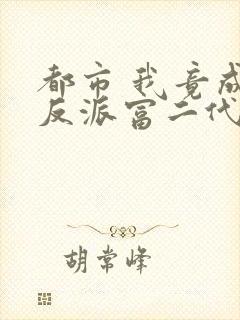 都市我竟成
反派富二代
胡常峰